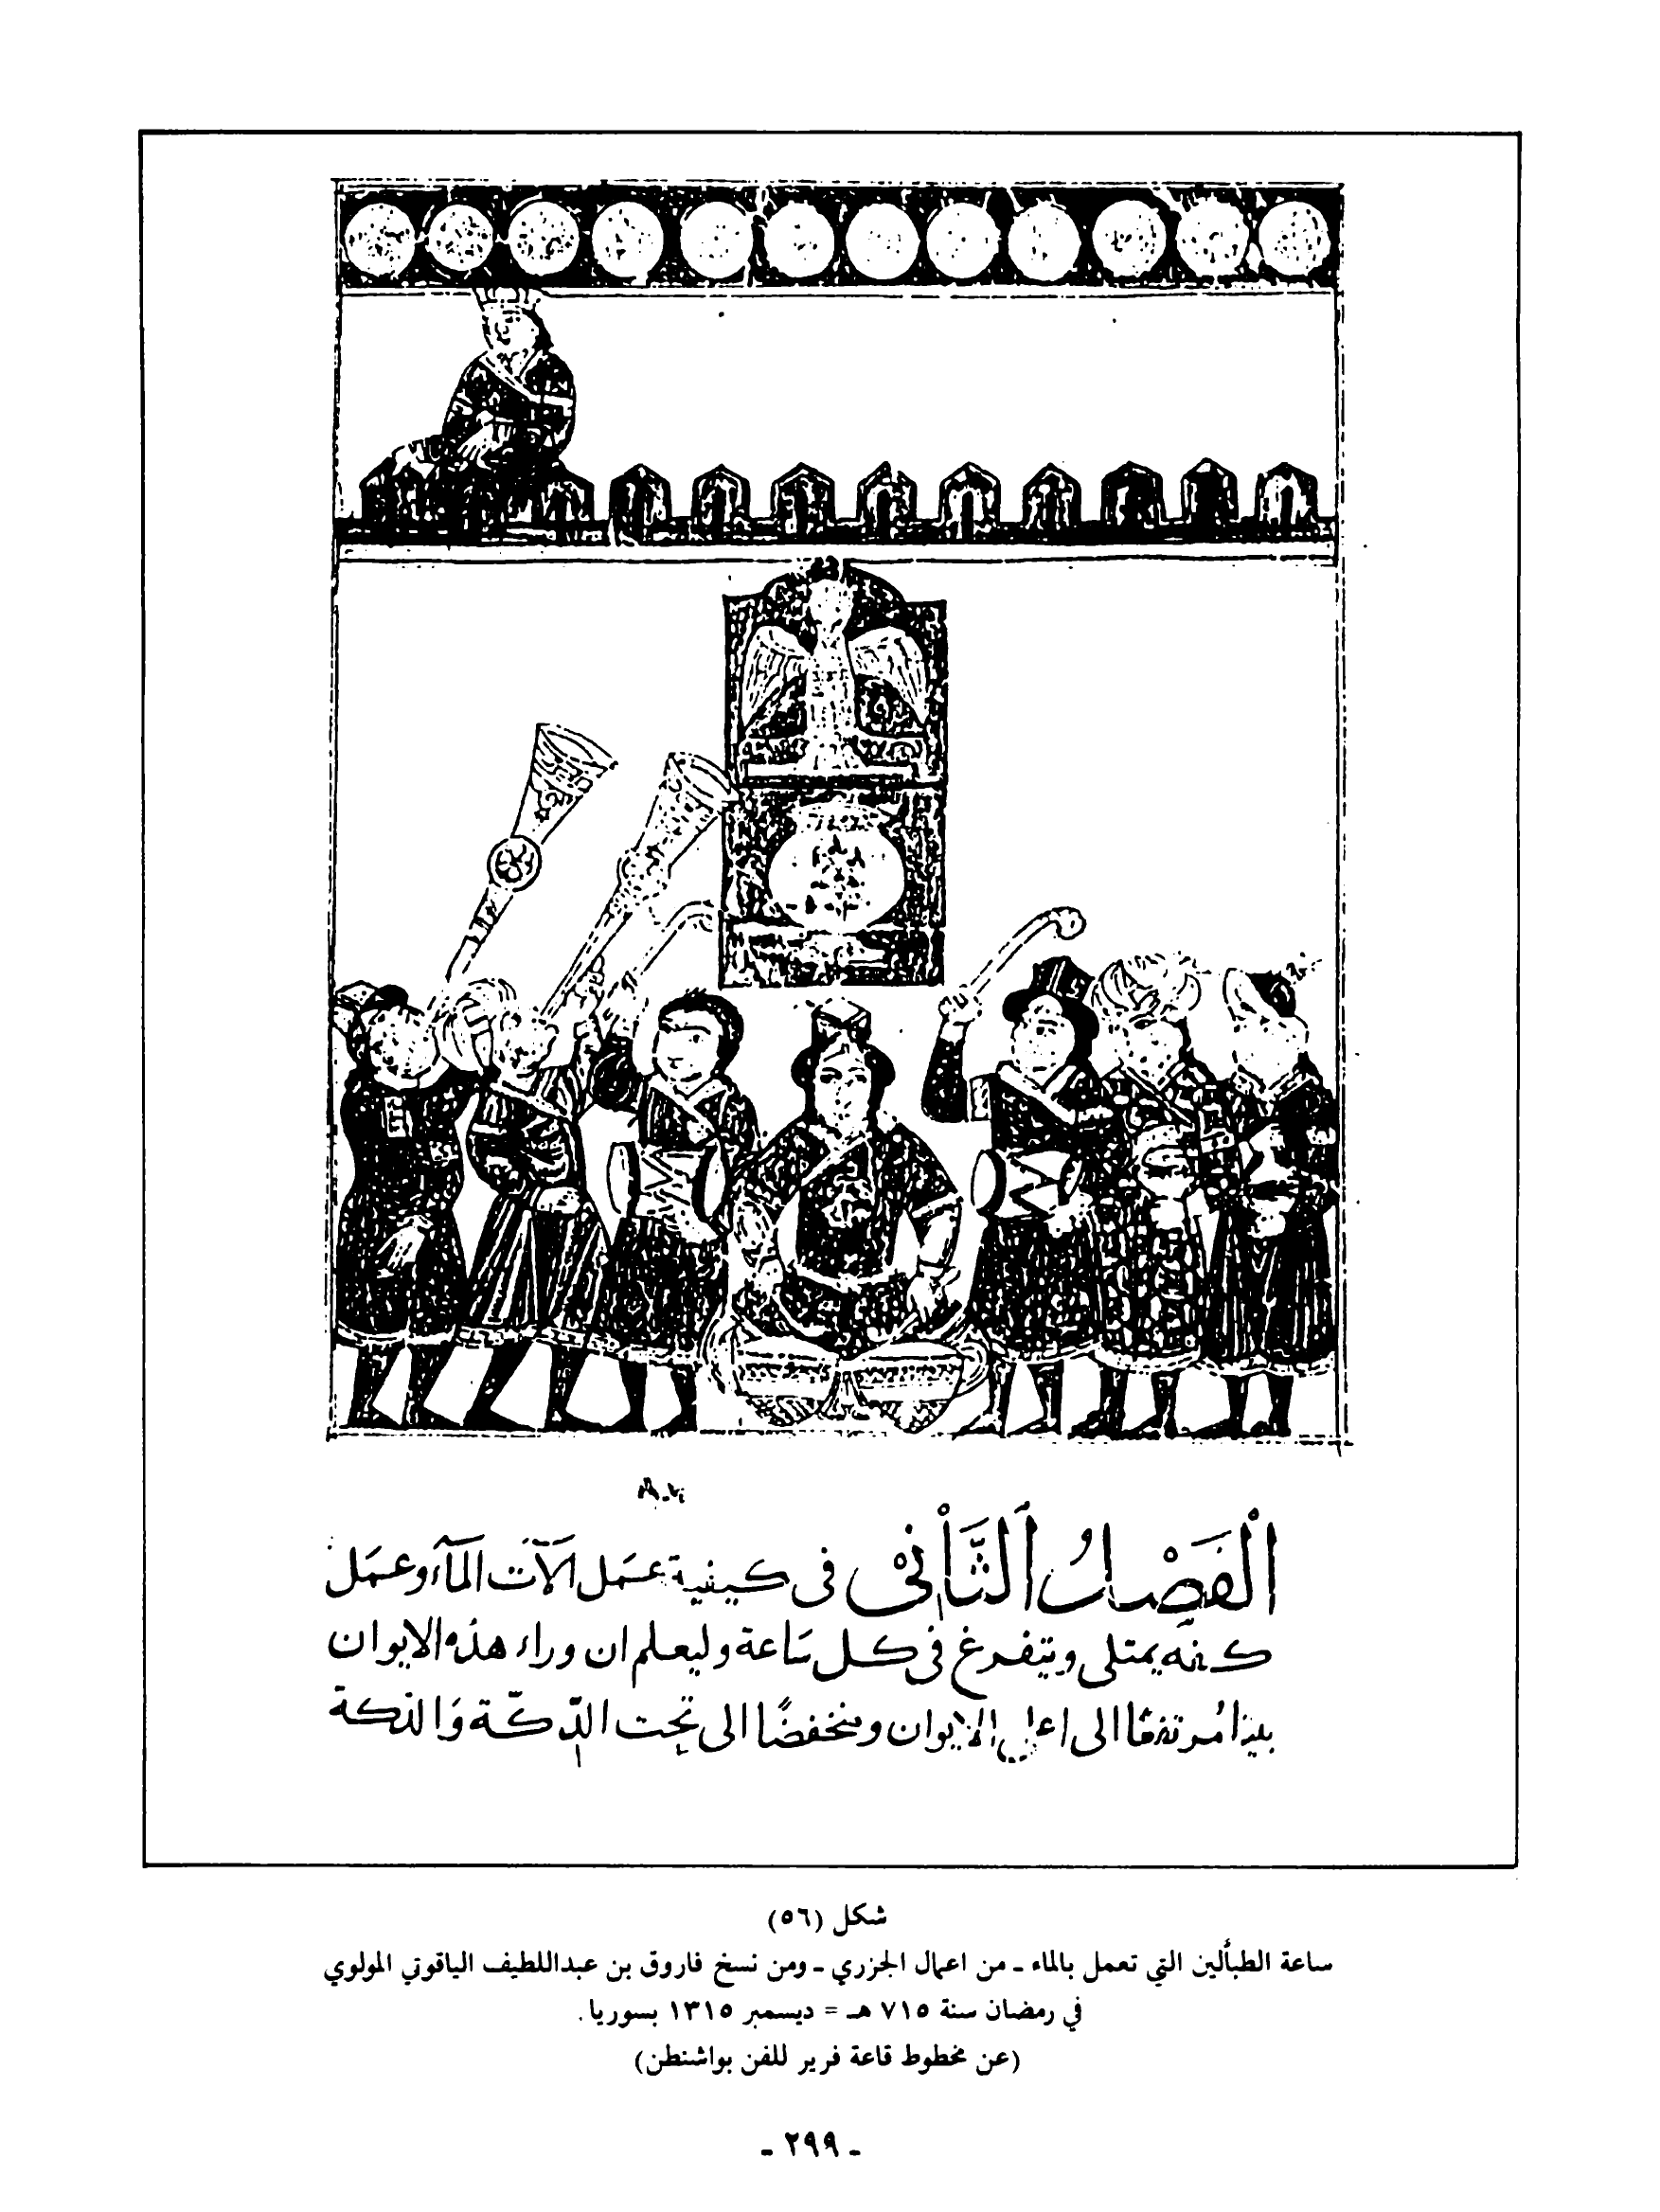 الْفَصْلُ الثَّانِي في كيفية عمَل الآت المآء وعمَل
كنه يمتلي ويتفرغ في كل سَاعة وليعلم ان وراء هذه الايوان
بيتا مرتفعا الى اعلى الايوان ومنخفضًا الى تحت الدّكّة وَالدكة
شكل (٥٦)
ساعة الطبألين التي تعمل بالماء ـ من اعمال الجزري ـ ومن نسخ فاروق بن عبداللطيف الياقوتي المولوي
في رمضان سنة ٧١٥ هـ = ديسمبر ١٣١٥ بسوريا .
(عن مخطوط قاعة فرير للفن بواشنطن)
- ٢٩٩ -